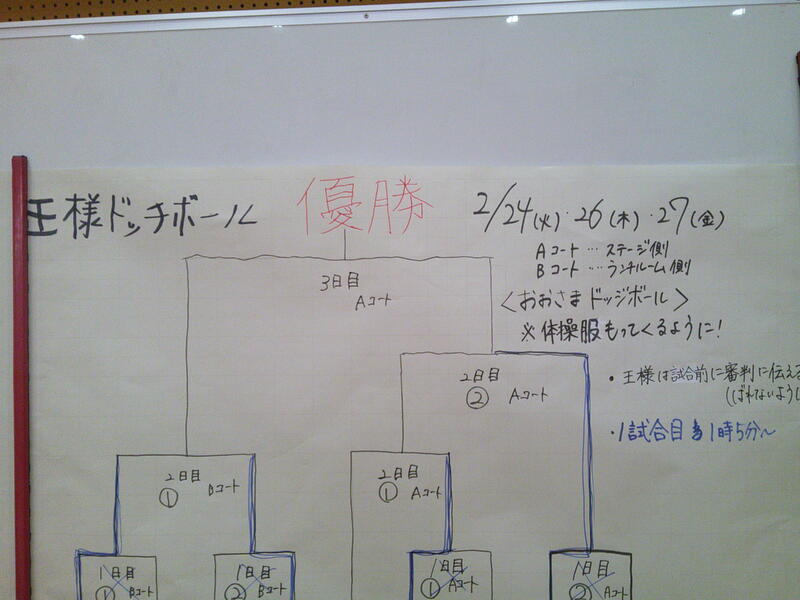 王様ドッチボール
優勝
2/24(火)・26(木)・27(金)
Aコート…ステージ側
Bコート…ランチルーム側
<おおさまドッジボール>
※体操服もってくるように!
3日目
Aコート
2日目
② Aコート
・王様は試合前に審判に伝える
(ばれないように
・1試合目 1時5分~
2日目
① Bコート
2日目
① Aコート
1日目
① Bコート
1日目
② Bコート
1日目
① Aコート
1日目
② Aコート